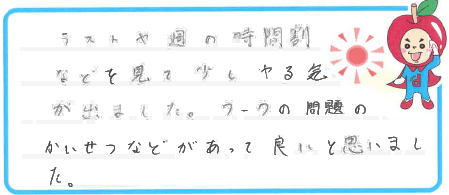 テストや週の時間割
などを見て少しやる気
が出ました。ワークの問題の
かいせつなどがあって良いと思いまし
た。